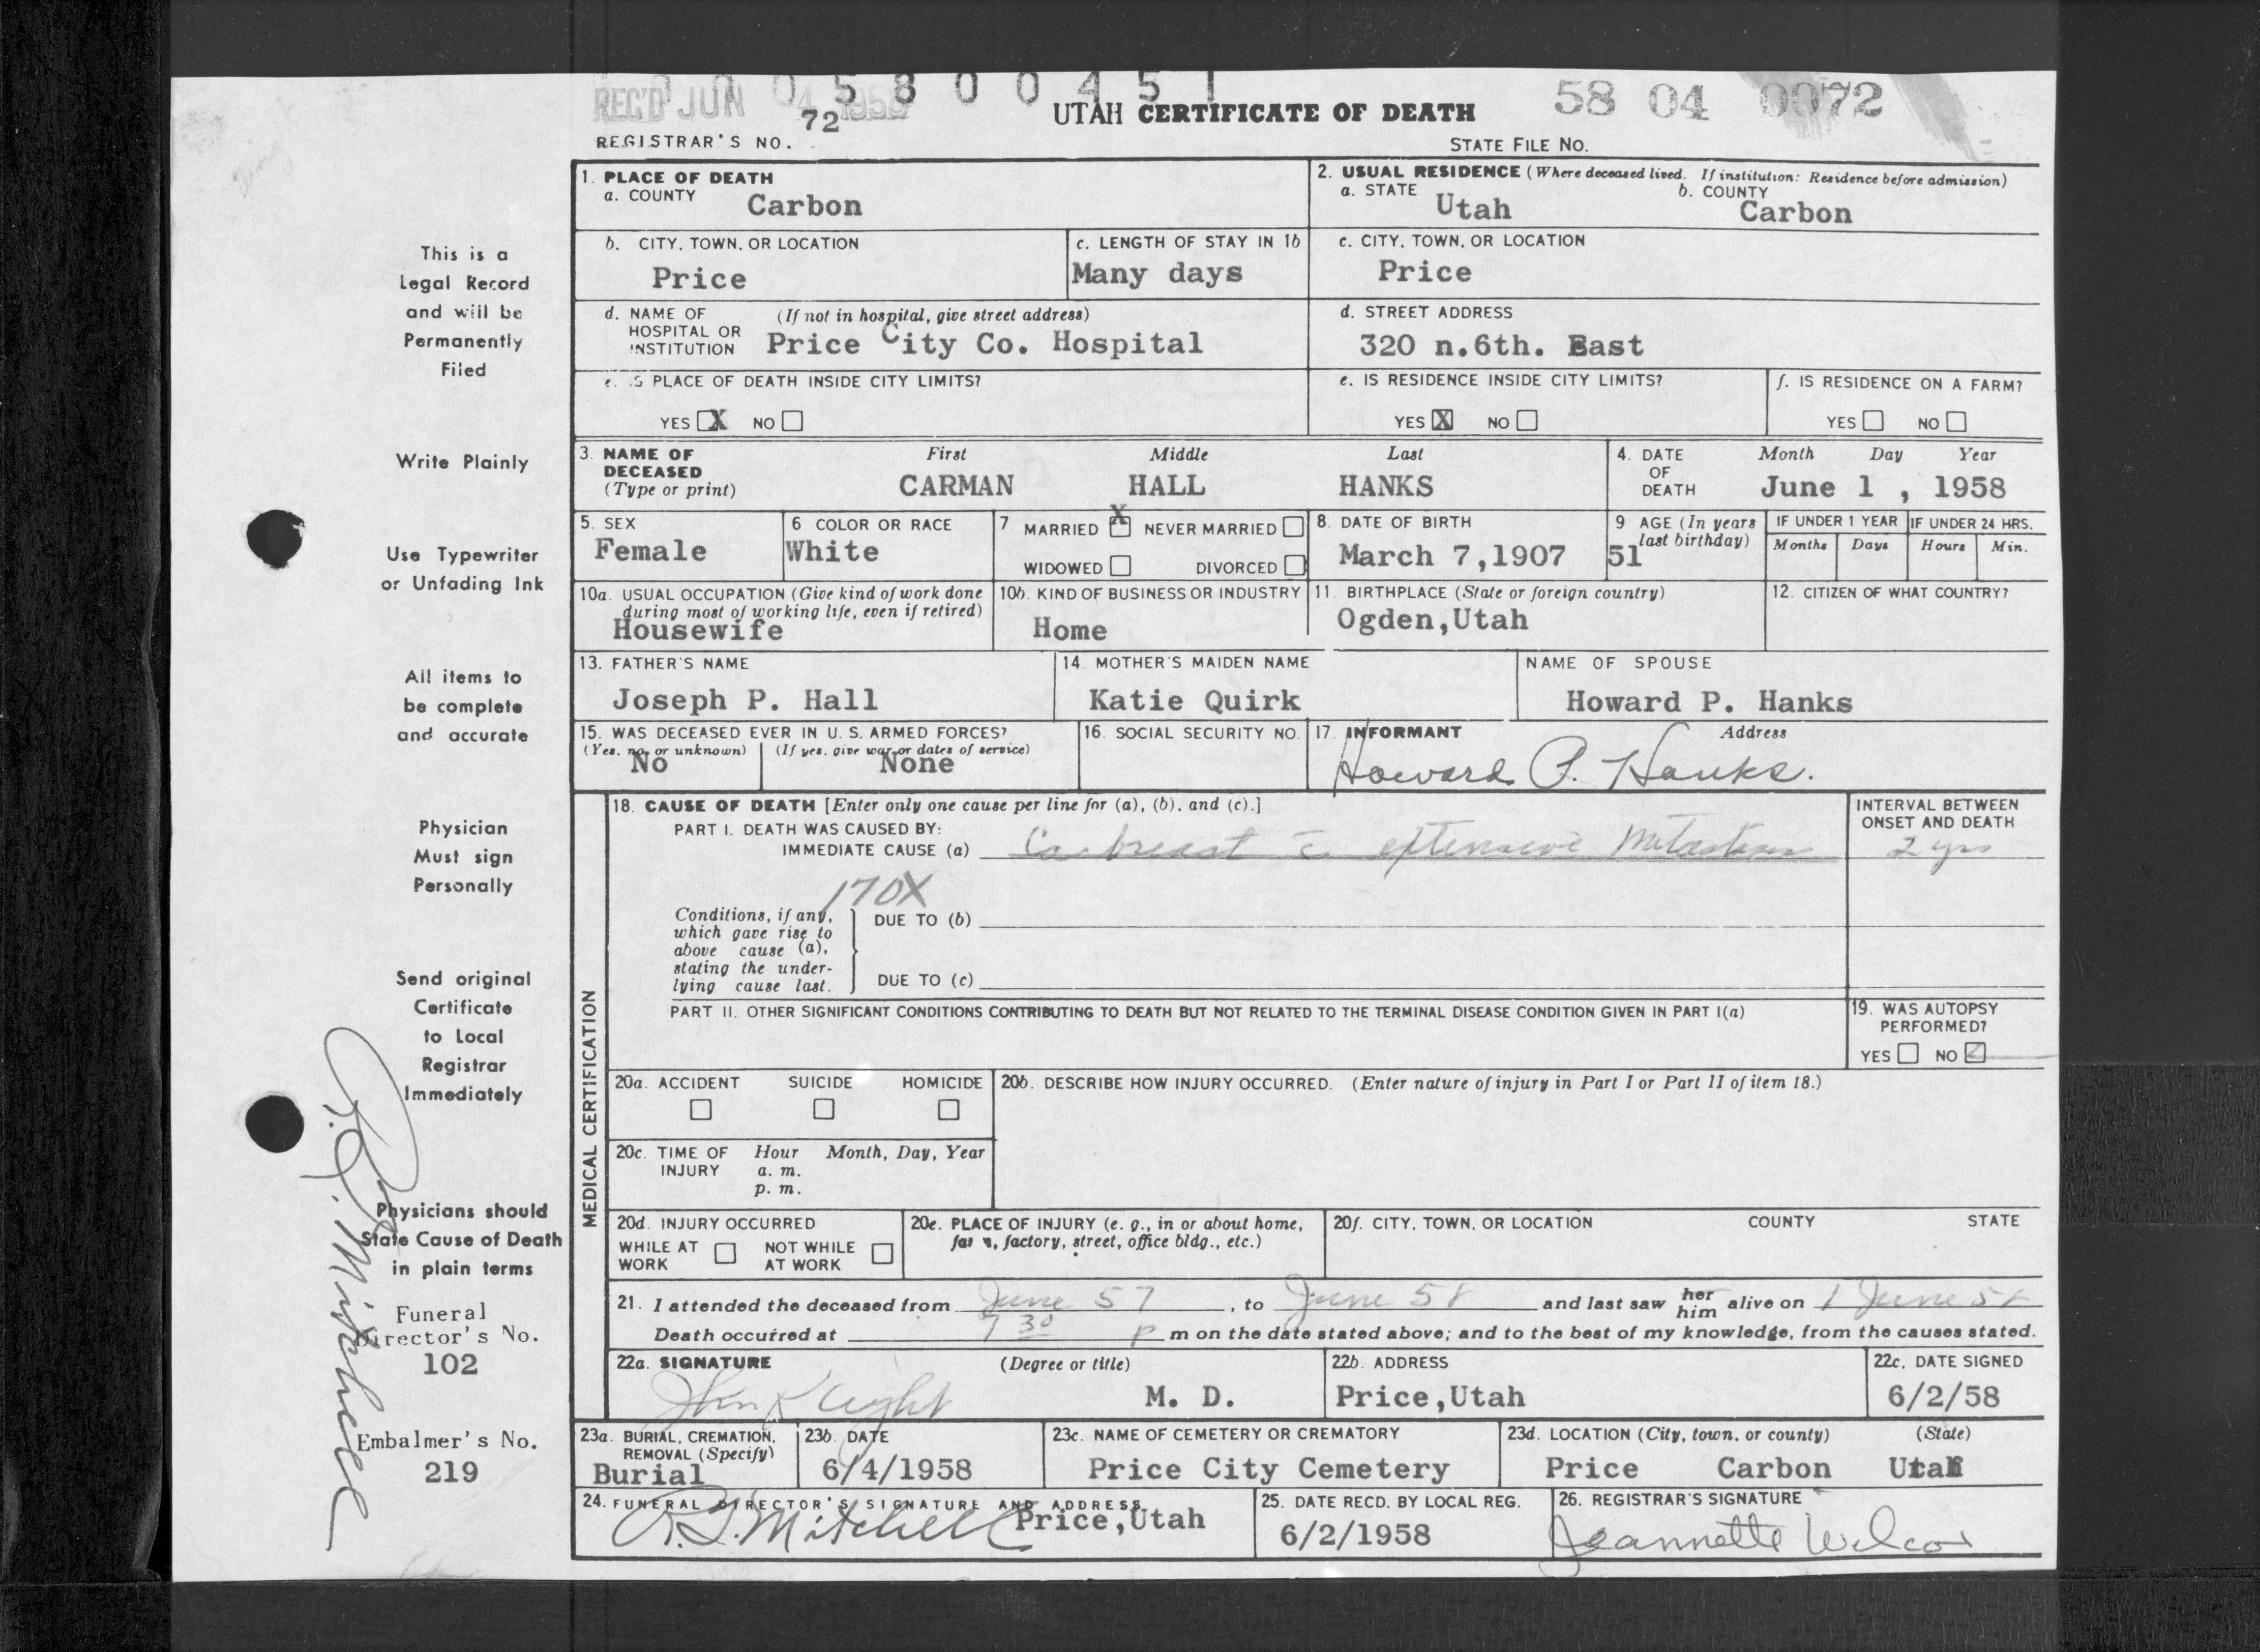 REC'D JUN 4 1958
0 0 0 5 8 0 0 4 5 1
58 04 0072
72
UTAH CERTIFICATE OF DEATH
REGISTRAR'S NO.
STATE FILE NO.
This is a
Legal Record
and will be
Permanently
Filed
Write Plainly
Use Typewriter
or Unfading Ink
All items to
be complete
and accurate
Physician
Must sign
Personally
Send original
Certificate
to Local
Registrar
Immediately
Physicians should
State Cause of Death
in plain terms
Funeral
Director's No.
102
Embalmer's No.
219
Mitchell
1. PLACE OF DEATH
a. COUNTY Carbon
2. USUAL RESIDENCE (Where deceased lived. If institution: Residence before admission)
a. STATE Utah b. COUNTY Carbon
b. CITY, TOWN, OR LOCATION Price
c. LENGTH OF STAY IN 1b Many days
c. CITY, TOWN, OR LOCATION Price
d. NAME OF HOSPITAL OR INSTITUTION (If not in hospital, give street address)
Price City Co. Hospital
d. STREET ADDRESS
320 n.6th. East
e. IS PLACE OF DEATH INSIDE CITY LIMITS?
YES X NO
e. IS RESIDENCE INSIDE CITY LIMITS?
YES X NO
f. IS RESIDENCE ON A FARM?
YES NO
3. NAME OF DECEASED (Type or print)
First Middle Last
CARMAN HALL HANKS
4. DATE OF DEATH Month Day Year
June 1 , 1958
5. SEX
Female
6 COLOR OR RACE
White
7 MARRIED X NEVER MARRIED
WIDOWED DIVORCED
8. DATE OF BIRTH
March 7,1907
9 AGE (In years last birthday)
51
IF UNDER 1 YEAR IF UNDER 24 HRS.
Months Days Hours Min.
10a. USUAL OCCUPATION (Give kind of work done during most of working life, even if retired)
Housewife
10b. KIND OF BUSINESS OR INDUSTRY
Home
11. BIRTHPLACE (State or foreign country)
Ogden,Utah
12. CITIZEN OF WHAT COUNTRY?
13. FATHER'S NAME
Joseph P. Hall
14. MOTHER'S MAIDEN NAME
Katie Quirk
NAME OF SPOUSE
Howard P. Hanks
15. WAS DECEASED EVER IN U. S. ARMED FORCES?
(Yes, no, or unknown) (If yes, give war or dates of service)
No None
16. SOCIAL SECURITY NO.
17. INFORMANT Address
Howard P. Hanks.
MEDICAL CERTIFICATION
18. CAUSE OF DEATH [Enter only one cause per line for (a), (b), and (c).]
INTERVAL BETWEEN ONSET AND DEATH
PART I. DEATH WAS CAUSED BY:
IMMEDIATE CAUSE (a) Ca breast c̄ extensive Metastases 2 yrs
170X
Conditions, if any, which gave rise to above cause (a), stating the underlying cause last.
DUE TO (b)
DUE TO (c)
PART II. OTHER SIGNIFICANT CONDITIONS CONTRIBUTING TO DEATH BUT NOT RELATED TO THE TERMINAL DISEASE CONDITION GIVEN IN PART I(a)
19. WAS AUTOPSY PERFORMED?
YES NO
20a. ACCIDENT SUICIDE HOMICIDE
20b. DESCRIBE HOW INJURY OCCURRED. (Enter nature of injury in Part I or Part II of item 18.)
20c. TIME OF INJURY Hour Month, Day, Year
a. m.
p. m.
20d. INJURY OCCURRED
WHILE AT WORK NOT WHILE AT WORK
20e. PLACE OF INJURY (e. g., in or about home, farm, factory, street, office bldg., etc.)
20f. CITY, TOWN, OR LOCATION COUNTY STATE
21. I attended the deceased from June 57 , to June 58 and last saw her him alive on 1 June 58
Death occurred at 7 30 p m on the date stated above; and to the best of my knowledge, from the causes stated.
22a. SIGNATURE (Degree or title)
John M. D.
22b. ADDRESS
Price,Utah
22c. DATE SIGNED
6/2/58
23a. BURIAL, CREMATION, REMOVAL (Specify)
Burial
23b. DATE
6/4/1958
23c. NAME OF CEMETERY OR CREMATORY
Price City Cemetery
23d. LOCATION (City, town, or county) (State)
Price Carbon Utah
24. FUNERAL DIRECTOR'S SIGNATURE AND ADDRESS
Mitchell Price,Utah
25. DATE RECD. BY LOCAL REG.
6/2/1958
26. REGISTRAR'S SIGNATURE
Jeannette Wilcox